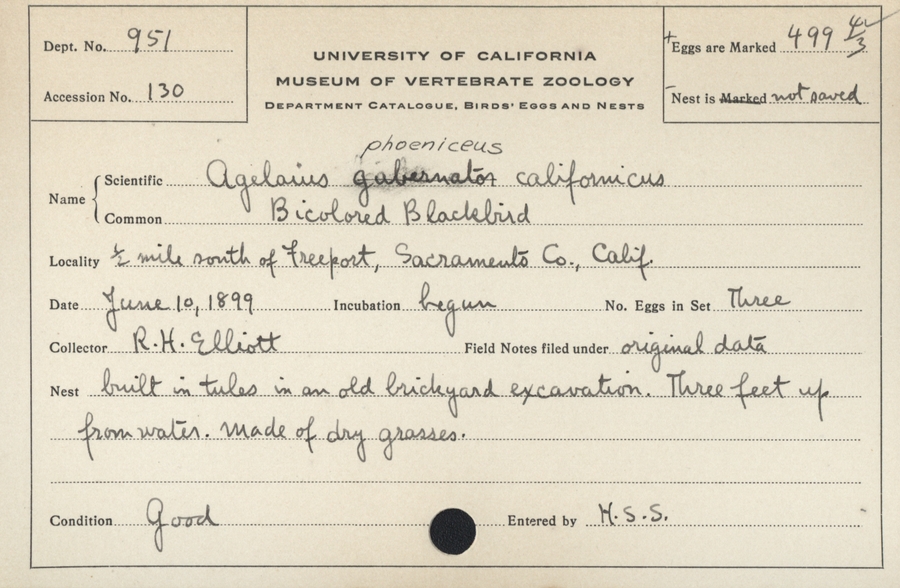 Dept. No. 951
Accession No. 130
UNIVERSITY OF CALIFORNIA
MUSEUM OF VERTEBRATE ZOOLOGY
DEPARTMENT CATALOGUE, BIRDS' EGGS AND NESTS
+ Eggs are Marked 499 4/3
- Nest is Marked not saved
phoeniceus
Name { Scientific Agelaius gubernator californicus
Common Bicolored Blackbird
Locality ½ mile south of Freeport, Sacramento Co., Calif.
Date June 10, 1899 Incubation begun No. Eggs in Set Three
Collector R.H. Elliott Field Notes filed under original data
Nest built in tules in an old brickyard excavation. Three feet up
from water. Made of dry grasses.
Condition Good Entered by H.S.S.